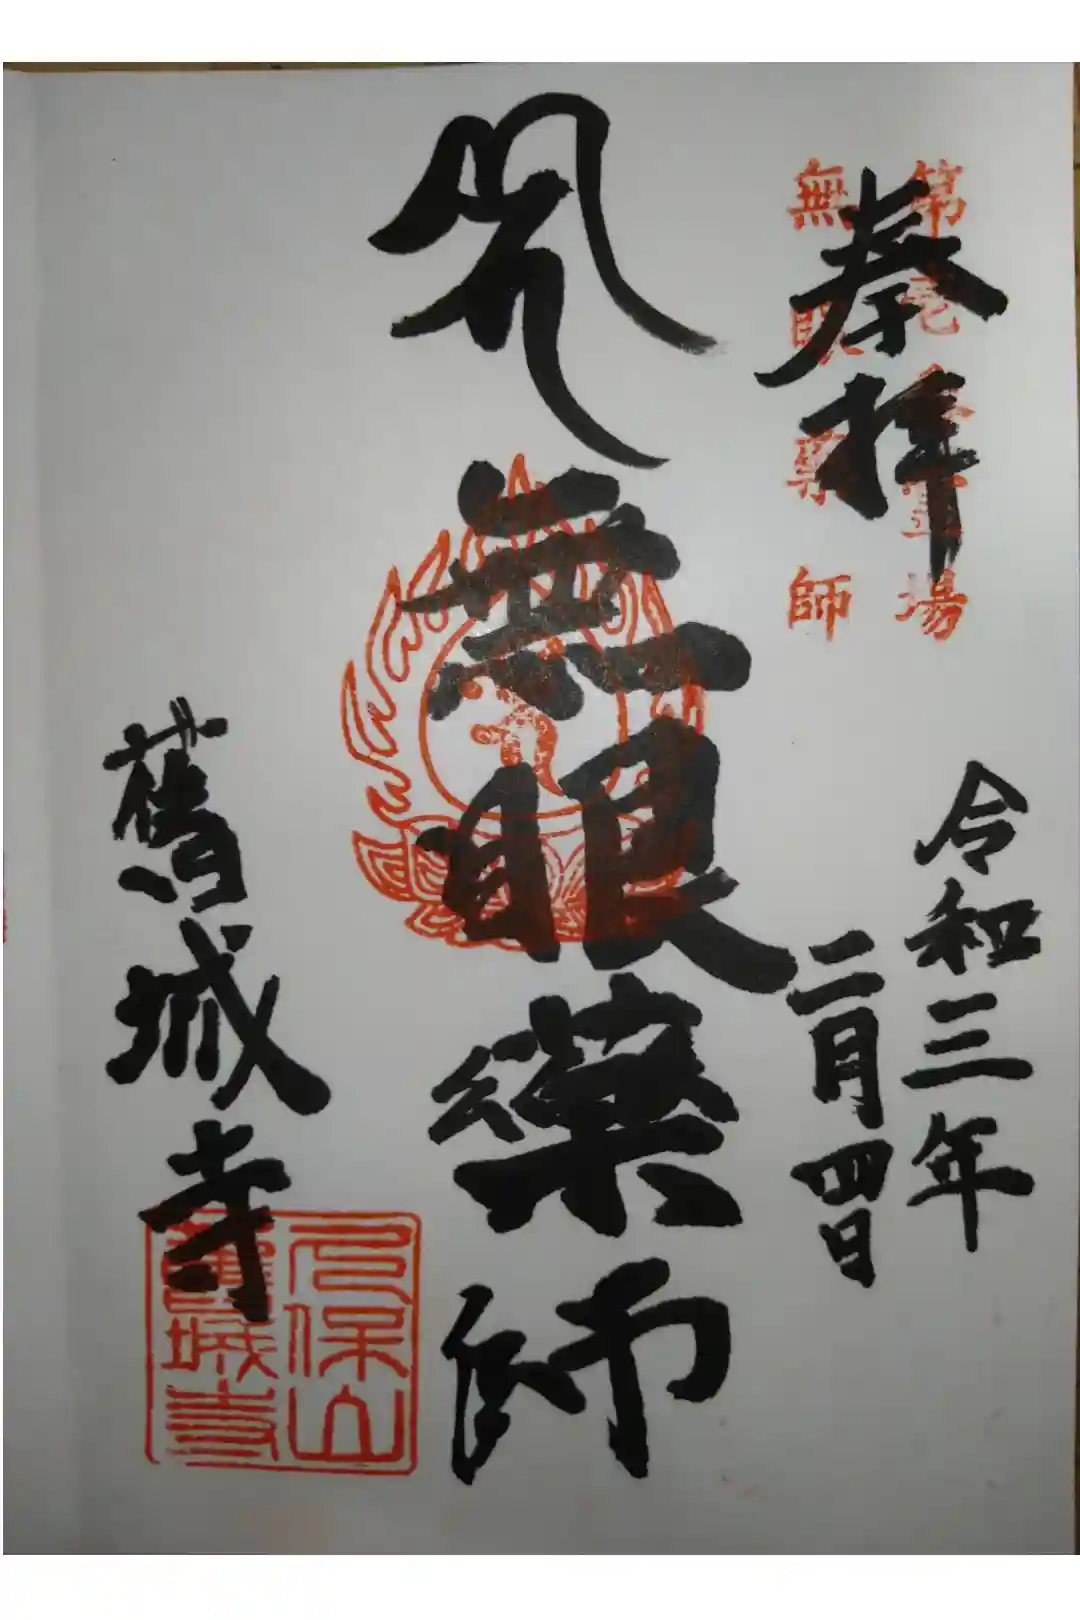 奉拝
第壱霊場
無眼尊師
令和三年
二月四日
無眼藥師
舊城寺
久保山
舊城寺